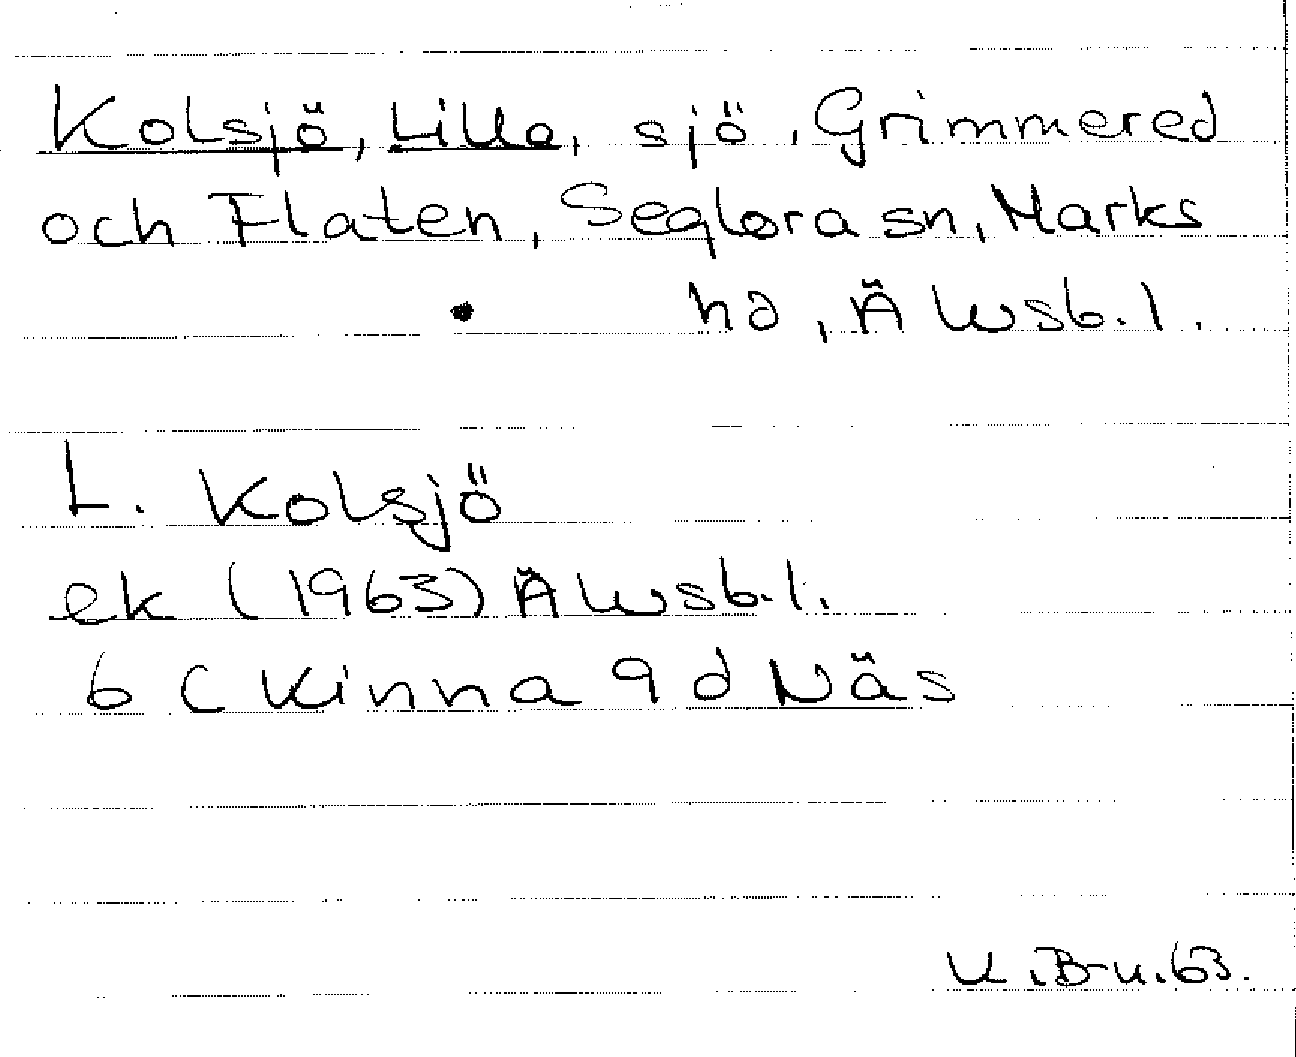 Kolsjö, Lilla, sjö, Grimmered
och Flaten, Seglora sn, Marks
hd, Älvsb. l.
L. Kolsjö
ek (1963) Älvsb. l.
6 C Kinna 9 d Näs
K.B-u.63.